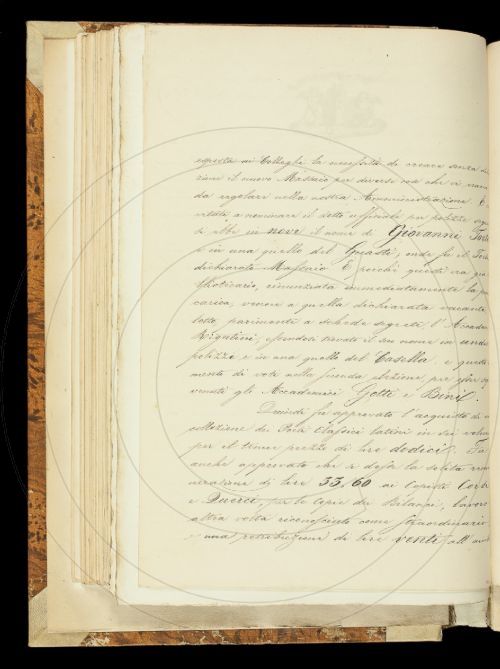 esposta ai Colleghi la necessità di creare senza
zione il nuovo Massaio per diverse cose che vi
da regolare nella nostra Amministrazione. E
a nominare il detto uffiziale per polizze
si ebbe in nove il nome di Giovanni
e in una quello del Guasti; onde fu il
dichiarato Massaio. E poichè questi era
bliotecario, rinunziata immediatamente la
carica, venne a quella dichiarata vacante
letto, parimente a schede segrete, l'Accade
Rigutini, essendosi trovato il suo nome in
polizze e in una quello del Casella e
mento di voti nella seconda elezione, per
venuti gli Accademici Gotti e Bini.
Quindi fu approvato l'acquisto di
collezione dei Poeti Classici latini in sei
per il tenue prezzo di lire dodici. Fu
anche approvato che si dasse la solita
nerazione di lire 33,60 ai Copisti
e per le copie dei Bilanci, lavoro
altra volta riconosciuto come straordinario
e una retribuzione di lire venti all'